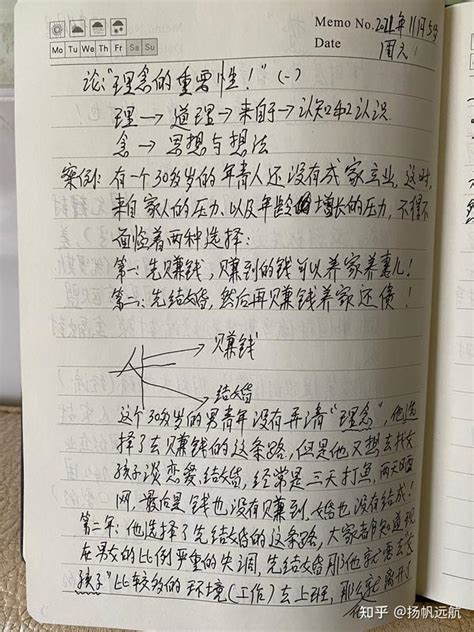 Memo No. 2021年11月5号
Mo Tu We Th Fr Sa Su
Date 周五
论"理念的重要性!"(一)
理→道理→来自于→认知和认识
念→思想与想法
案例:有一个30多岁的年青人还没有成家立业,这时,
来自家人的压力,以及年龄的增长的压力,不得不
面临着两种选择:
第一:先赚钱,赚到的钱可以养家养妻儿!
第二:先结婚,然后再赚钱养家还债!
赚钱
结婚
这个30多岁的男青年没有弄清"理念",他选
择了去赚钱的这条路,但是他又想去找女
孩子谈恋爱,结婚,经常是三天打鱼,两天晒
网,最后是钱也没有赚到,婚也没有结成!
第二年:他选择了先结婚的这条路,大家都知道现
在男女的比例严重的失调,先结婚那他就要去女
孩子"比较多的环境(工作)去上班,那么就离开了
知乎 @扬帆远航